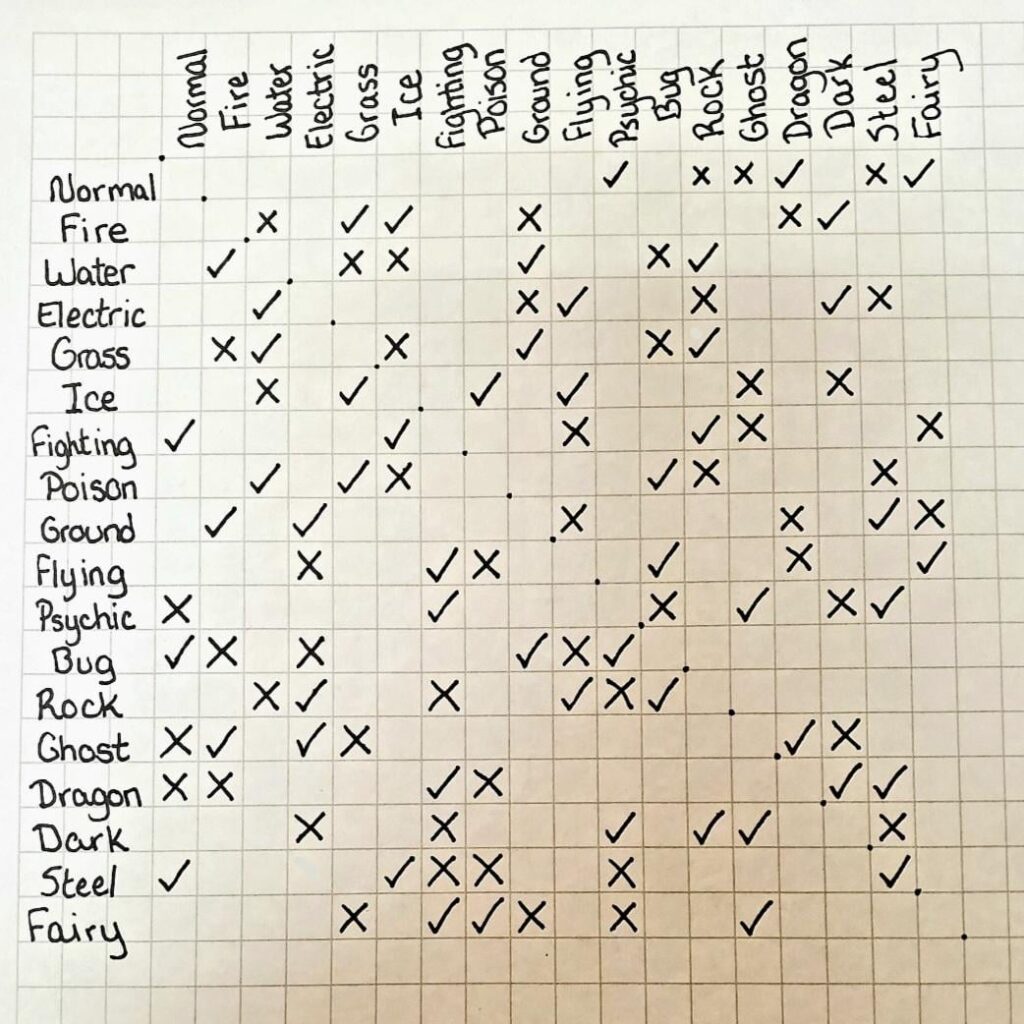 Normal Fire Water Electric Grass Ice Fighting Poison Ground Flying Psychic Bug Rock Ghost Dragon Dark Steel Fairy
Normal ✓ × × ✓ × ✓
Fire × ✓ ✓ × × ✓
Water ✓ × × ✓ × ✓
Electric ✓ × ✓ × ✓ ×
Grass × ✓ × ✓ × ✓
Ice × ✓ ✓ ✓ × ×
Fighting ✓ ✓ × ✓ × ×
Poison ✓ ✓ × ✓ × ×
Ground ✓ ✓ × × ✓ ×
Flying × ✓ × ✓ × ✓
Psychic × ✓ × ✓ × ✓
Bug ✓ × × ✓ × ✓
Rock × ✓ × ✓ × ✓
Ghost × ✓ ✓ × ✓ ×
Dragon × × ✓ × ✓ ✓
Dark × × ✓ ✓ ✓ ×
Steel ✓ ✓ × × × ✓
Fairy × ✓ ✓ × × ✓